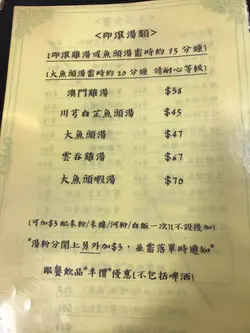 <即滾湯類>
[即滾雞湯或魚頭湯需時約15分鐘]
[大魚頭湯需時約20分鐘 請耐心等候]
澳門雞湯 $38
川芎白芷魚頭湯 $45
大魚頭湯 $47
雲吞雞湯 $67
大魚頭蝦湯 $70
[可加$3配米粉/米線/河粉/白飯一次][不設後加]
"湯粉分開上另外加$3，並需落單時通知"
跟餐飲品"半價"優惠[不包括啤酒]